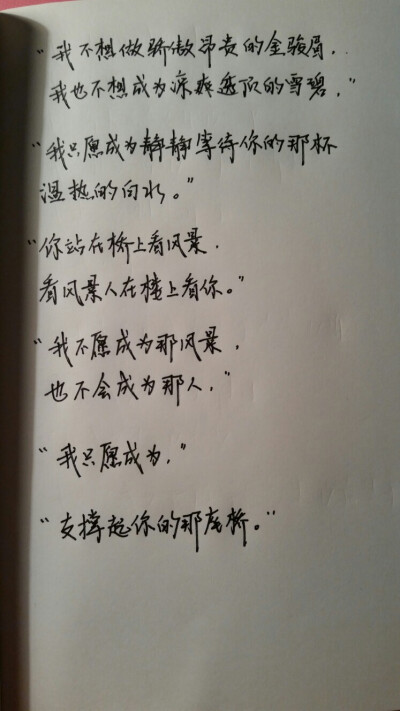 “我不想做骄傲昂贵的金骏眉.
我也不想成为凉爽透顶的雪碧.”
“我只愿成为静静等待你的那杯
温热的白水。”
“你站在桥上看风景.
看风景人在楼上看你。”
“我不愿成为那风景.
也不会成为那人.”
“我只愿成为.”
“支撑起你的那座桥。”